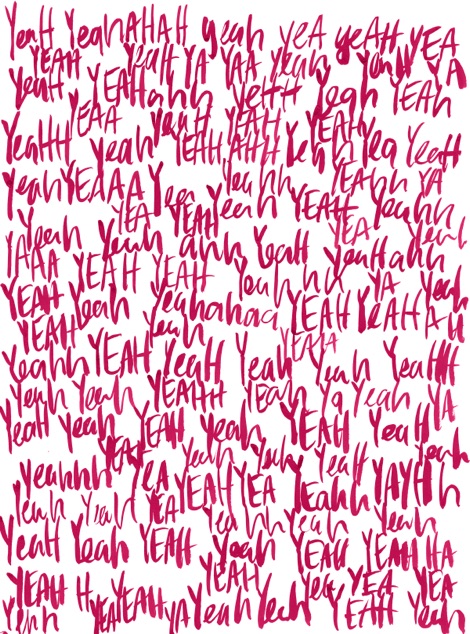 YeaH YeaHAHAH yeah yEA yeAH YEA
YEAH YeaH YA YAA Yeah YeaH YA
YeaH YEAHahh YeHH Yeah YEAh
YEAA yeaH YEAH YEAH
YeaHH Yeah YEAH AHH Yeah Yea YeaH
Yeahh YEAhh YA
YeahYEAAA Yea Yeah YEAH Yeahh
YEA YEAH YEA
Yeah Yeah ahh Yeah YeaHahh Yeah
YAAA YEAH YEAH Yeah YA
YEAH Yeah Yeahahaa YEAH YEAHAH
YEAH Yeah YEAHA
Yeahh YEAH YeaH Yeah Yeah YeaHH
Yeah Yeah YEAHH YEAh Ya Yeah YA
YeaH yeah YEAH Yeah YEAH YeaH
YEAH Yeah Yeah YeaH Yeah
yeahhh YEA YEAH YEA YEahh YAYHh
Yeah Yeah YEA Yeahh Yeah Yeah
YeaH Yeah YEAH Yeah YEAH YEAHHA
YEAH H YEAH Yea YEA YEA
Yeah YEAYEAH YA Yeah Yeah YEAH Yeah